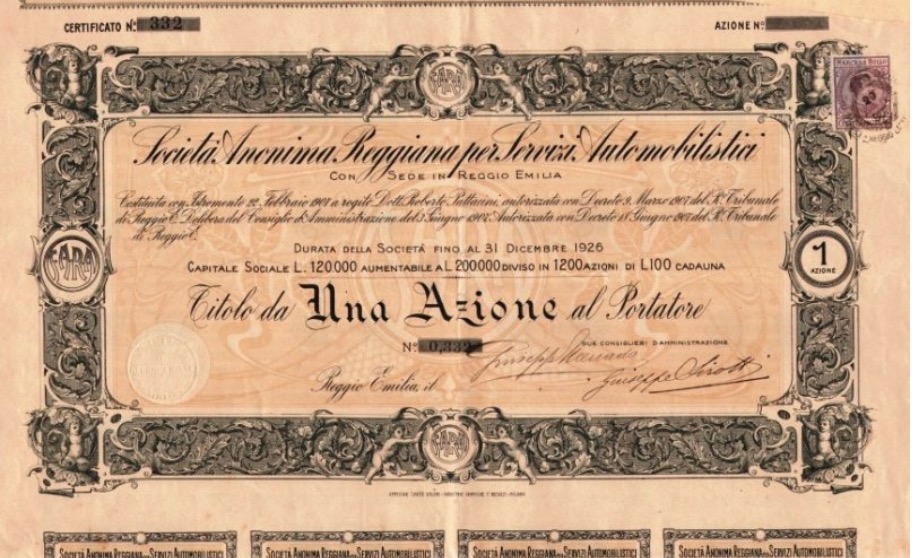 CERTIFICATO Nº 332
AZIONE Nº
MARCA DA BOLLO
SARA
Società Anonima Reggiana per Servizi Automobilistici
CON SEDE IN REGGIO EMILIA
Costituita con Istromento 22 Febbraio 1907 a rogito Dott. Roberto Pattacini, autorizzata con Decreto 9 Marzo 1907 del R. Tribunale
di Reggio E. Delibera del Consiglio d'Amministrazione del 3 Giugno 1907 Autorizzata con Decreto 18 Giugno 907 del R. Tribunale
di Reggio E.
SARA
1
AZIONE
DURATA DELLA SOCIETÀ FINO AL 31 DICEMBRE 1926
CAPITALE SOCIALE L. 120.000 AUMENTABILE A L. 200000 DIVISO IN 1200 AZIONI DI L.100 CADAUNA
Titolo da Una Azione al Portatore
Nº 0,332
DUE CONSIGLIERI D'AMMINISTRAZIONE
Reggio Emilia, il
Giuseppe
SARA
SOCIETÀ ANONIMA REGGIANA PER SERVIZI AUTOMOBILISTICI
SOCIETÀ ANONIMA REGGIANA PER SERVIZI AUTOMOBILISTICI
SOCIETÀ ANONIMA REGGIANA PER SERVIZI AUTOMOBILISTICI
SOCIETÀ ANONIMA REGGIANA PER SERVIZI AUTOMOBILISTICI